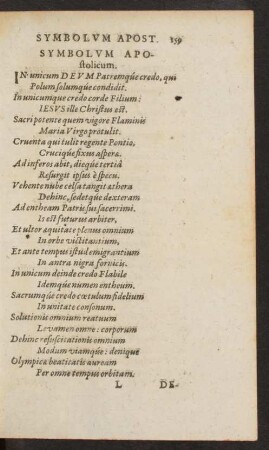 SYMBOLVM APOST. 159
SYMBOLVM APO-
stolicum.
IN unicum DEVM Patremqúe credo, qui
Polum solumqúe condidit.
In unicumque credo corde Filium:
IESVS ille Christus est.
Sacri potente quem vigore Flaminis
Maria Virgo protulit.
Cruenta qui tulit regente Pontio,
Crucique fixus aspera.
Ad inferos abit, diequé tertiâ
Resurgit ipsus è specu.
Vehente nube celsa tangit æthera
Dehinc, sedetqúe dexteram
Ad entheam Patris sui sacerrimi.
Is est futurus arbiter,
Et ultor aquitate plenus omnium
In orbe victitantium,
Et ante tempus istud emigrantium
In antra nigra fornicis.
In unicum deinde credo Flabile
Idemqúe numen entheum.
Sacrumqúe credo cœtulum fidelium
In unitate consonum.
Solutionis omnium reatuum
Levamen omne: corporum
Dehinc resuscitationis omnium
Modum viamqúe: denique
Olympica beatitatis auream
Per omne tempus orbitam.
L DE-